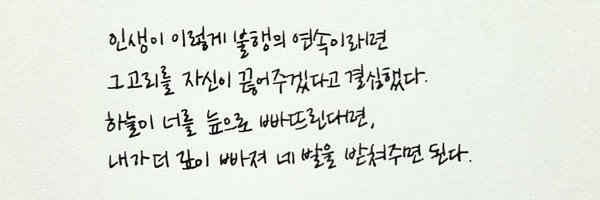 인생이 이렇게 불행의 연속이라면
그 고리를 자신이 끊어주겠다고 결심했다.
하늘이 너를 늪으로 빠뜨린다면,
내가 더 깊이 빠져 네 발을 받쳐주면 된다.